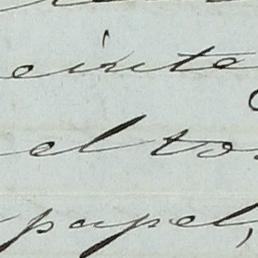 einte
el to
papel,